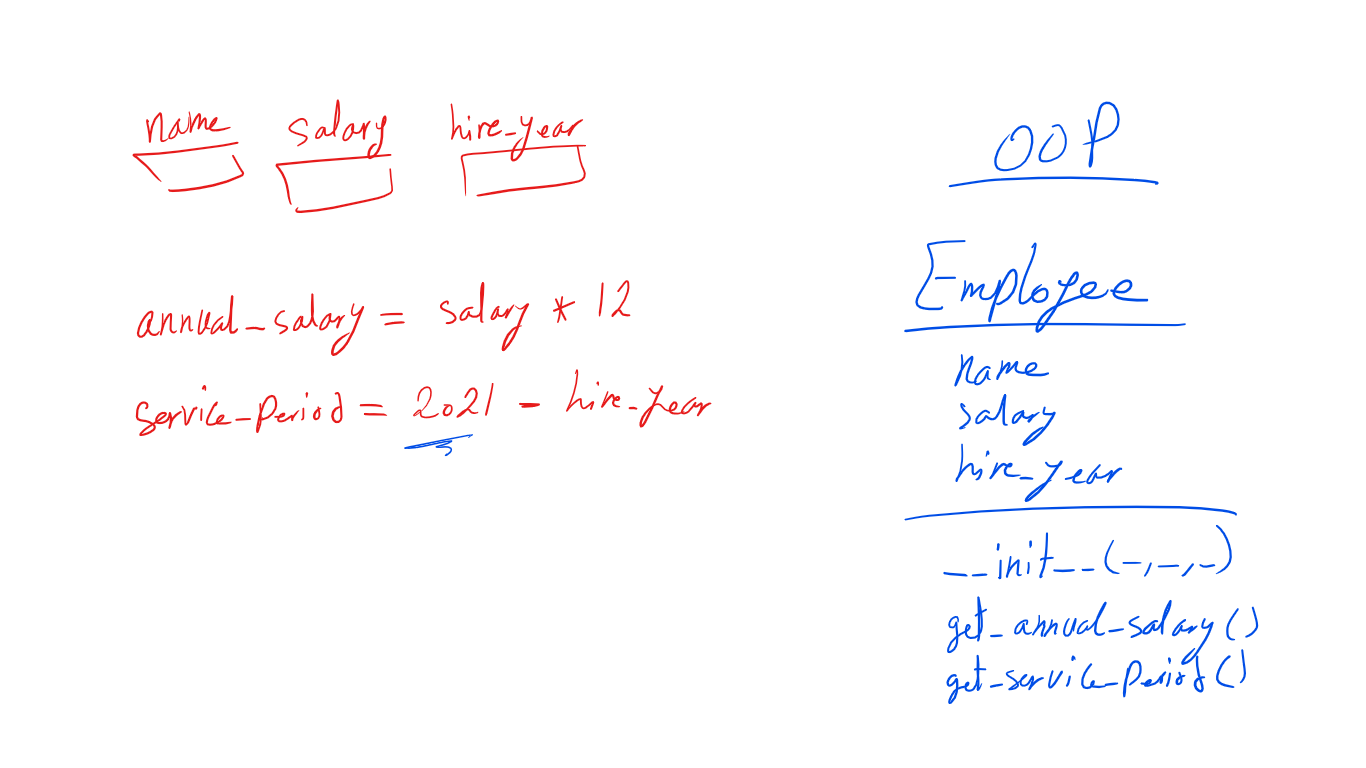 name salary hire_year
annual_salary = salary * 12
service_period = 2021 - hire_year
OOP
Employee
name
salary
hire_year
__init__(-,-,-)
get_annual_salary()
get_service_period()